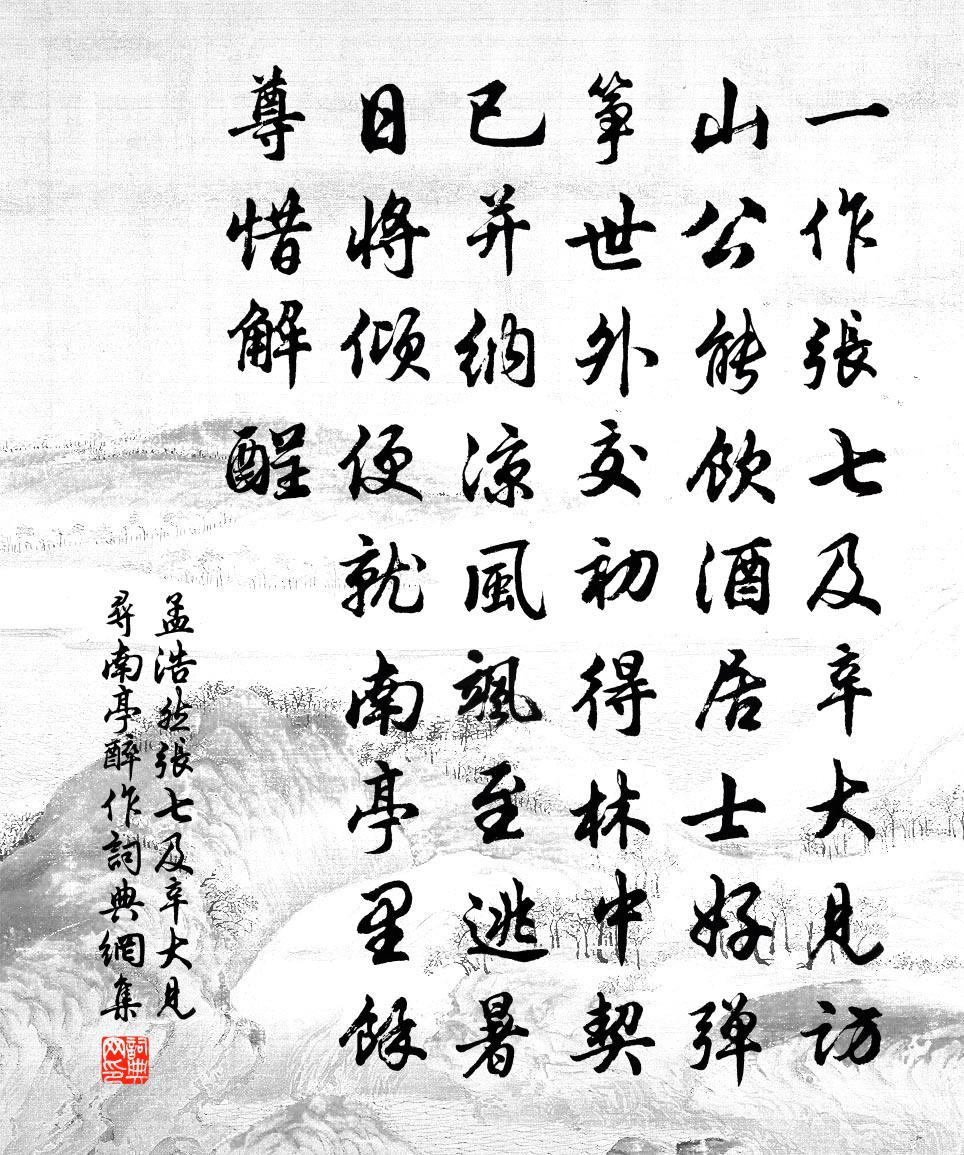 一作張七及辛大見訪
山公能飲酒居士好弹
筝世外交初得林中契
已并纳涼風颯至逃暑
日将倾便就南亭里餘
尊惜解酲
孟浩然張七及辛大見
尋南亭醉作詞典網集
詞典网印